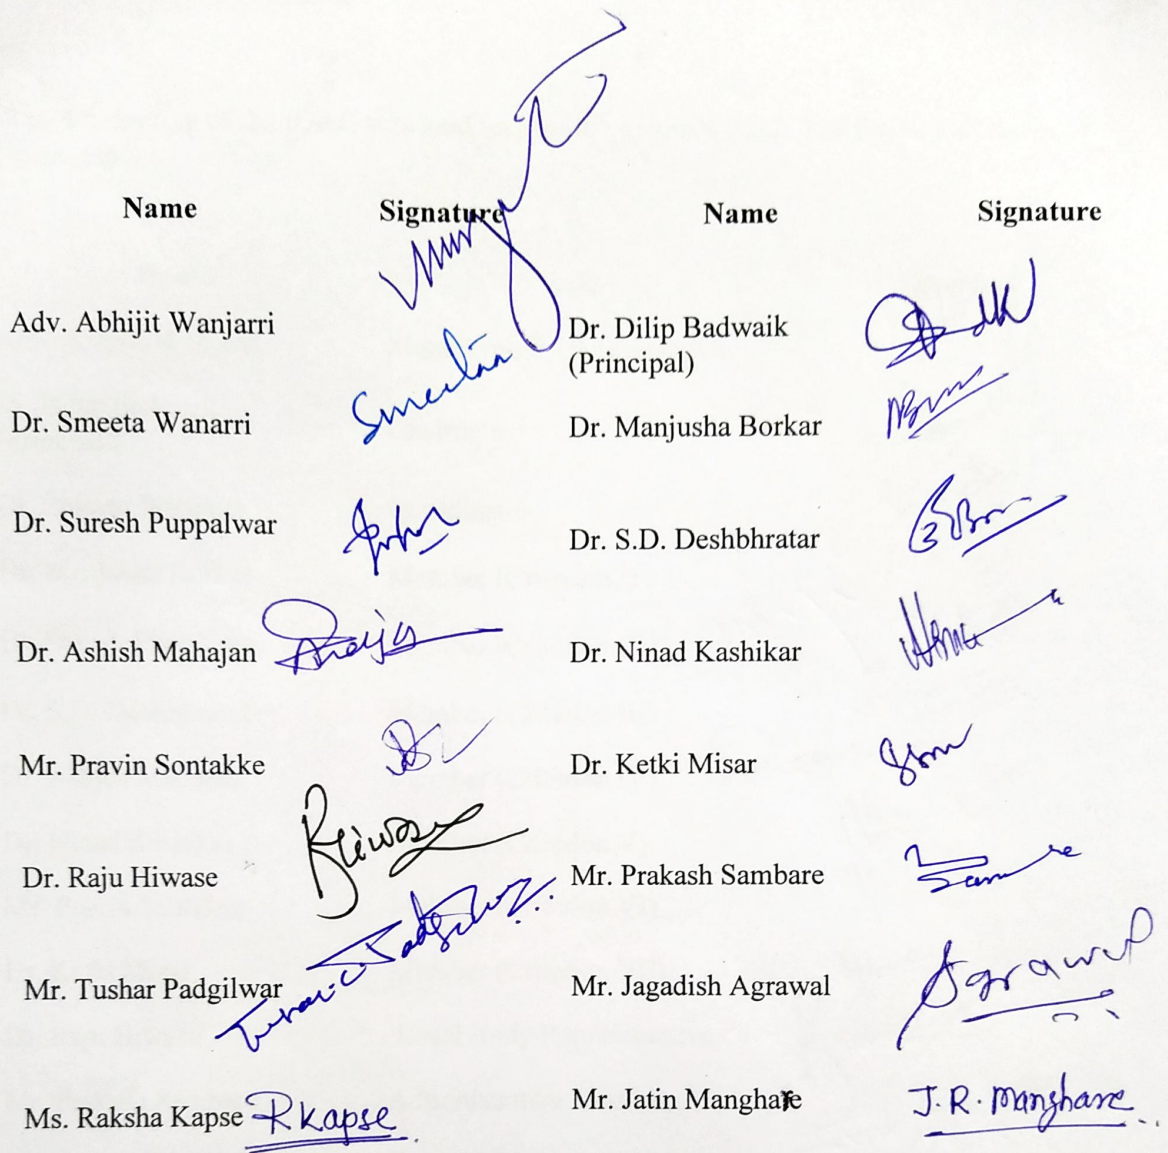 Name Signature Name Signature
Adv. Abhijit Wanjarri Dr. Dilip Badwaik
(Principal)
Dr. Smeeta Wanarri Smeeta Dr. Manjusha Borkar
Dr. Suresh Puppalwar Dr. S.D. Deshbhratar
Dr. Ashish Mahajan Dr. Ninad Kashikar
Mr. Pravin Sontakke Dr. Ketki Misar
Dr. Raju Hiwase RHiwase Mr. Prakash Sambare
Mr. Tushar Padgilwar Mr. Jagadish Agrawal Agrawal
Ms. Raksha Kapse RKapse Mr. Jatin Manghare J.R. Manghare